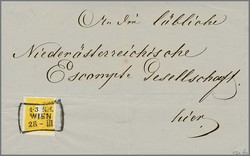 An die löbliche
Niederösterreichische
Escompte Gesellschaft.
hier
WIEN
28 - III